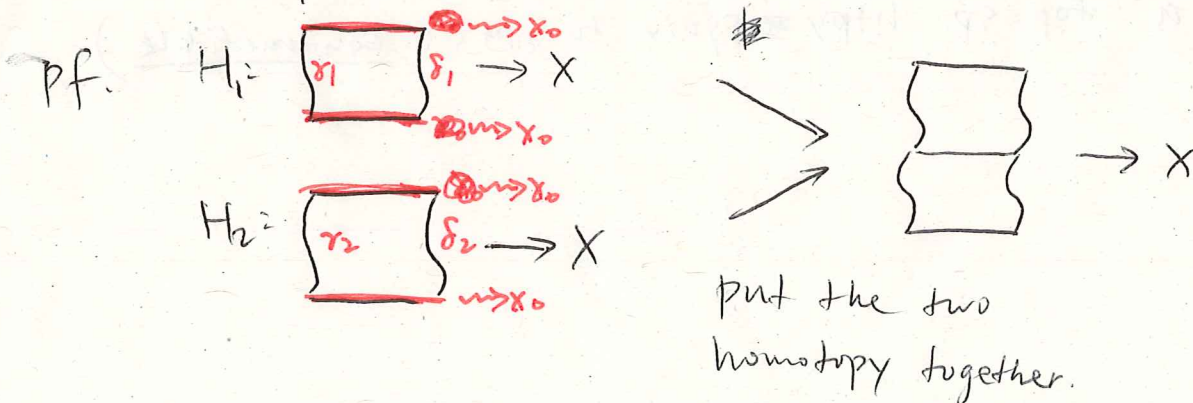 pf. H₁: γ₁ δ₁ → X
⇝ x₀
⇝ x₀
H₂: γ₂ δ₂ → X
⇝ x₀
⇝ x₀
→ X
put the two
homotopy together.